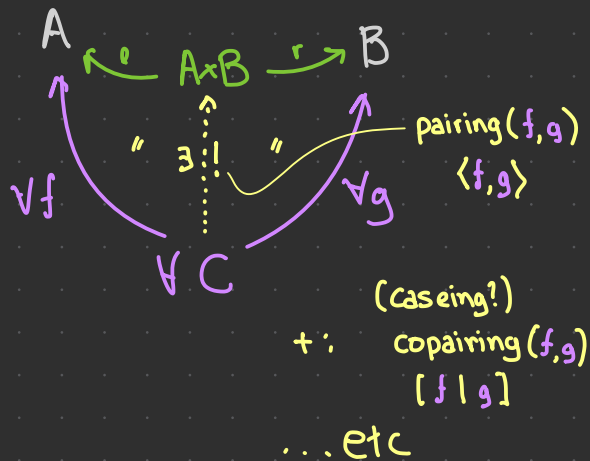 A B
ℓ A×B r
" ∃! "
pairing(f,g)
⟨f,g⟩
∀f ∀g
∀ C
(caseing?)
+: copairing(f,g)
[f|g]
...etc